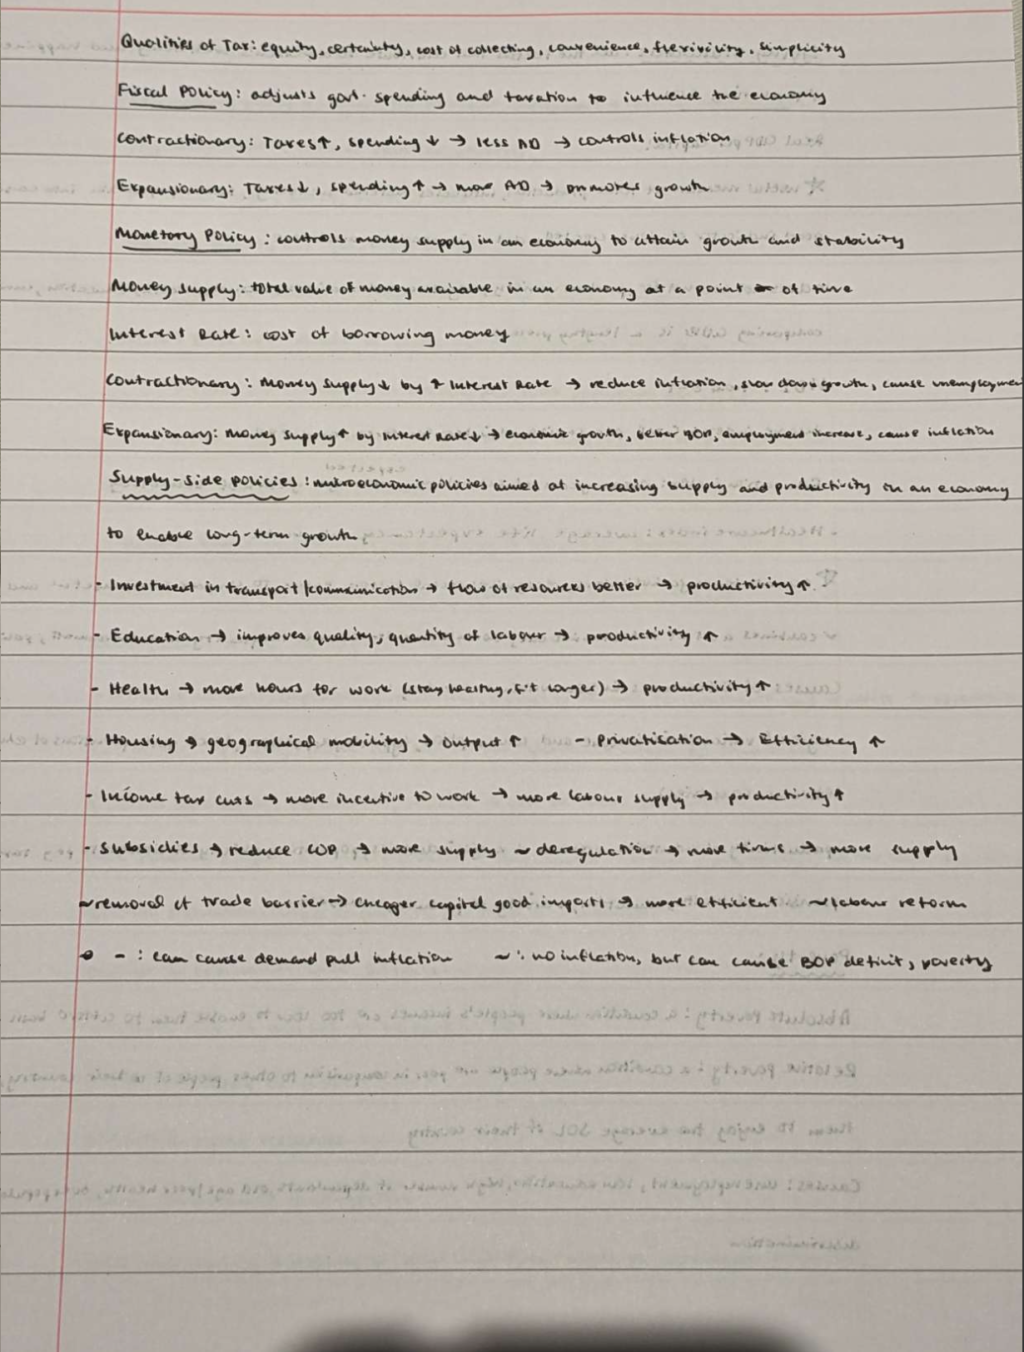 Qualities of Tax: equity, certainty, cost of collecting, convenience, flexibility, simplicity
Fiscal Policy: adjusts govt. spending and taxation to influence the economy
Contractionary: Taxes↑, spending ↓ → less AD → controls inflation
Expansionary: Taxes↓, spending ↑ → more AD → promotes growth
Monetary Policy: controls money supply in an economy to attain growth and stability
Money supply: total value of money available in an economy at a point of time
Interest Rate: cost of borrowing money
Contractionary: Money supply↓ by ↑ Interest Rate → reduce inflation, slow down growth, cause unemployment
Expansionary: Money supply↑ by Interest Rate↓ → economic growth, better BOP, employment increase, cause inflation
Supply-side policies: microeconomic policies aimed at increasing supply and productivity in an economy
to enable long-term growth
- Investment in transport/communication → flow of resources better → productivity↑
- Education → improves quality, quantity of labour → productivity ↑
- Health → more hours for work (stay healthy, fit longer) → productivity↑
- Housing → geographical mobility → output ↑ - Privatisation → Efficiency ↑
- Income tax cuts → more incentive to work → more labour supply → productivity↑
- subsidies → reduce COP → more supply ~ deregulation → more firms → more supply
~removal of trade barrier → cheaper capital good imports → more efficient ~labour reform
- : can cause demand pull inflation ~ : no inflation, but can cause BOP deficit, poverty